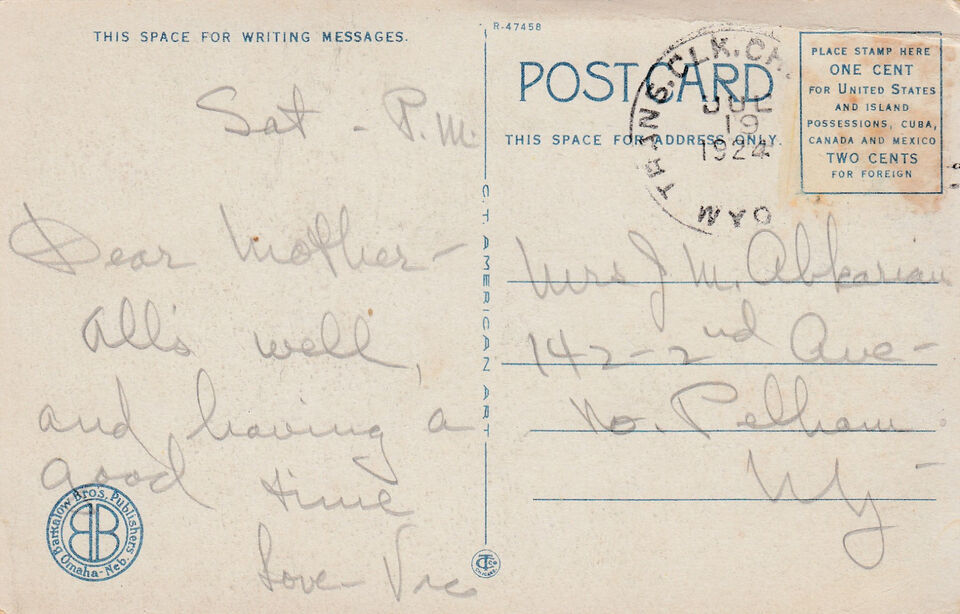 THIS SPACE FOR WRITING MESSAGES.
Sat - P.M.
Dear Mother-
All's well,
and having a
good time
Love- Vic
Barkalow Bros. Publishers
BB
Omaha-Neb.
C.T. AMERICAN ART
CHICAGO
R-47458
POST CARD
THIS SPACE FOR ADDRESS ONLY.
TRANS. CLK. CH.
JUL
19
1924
PLACE STAMP HERE
ONE CENT
FOR UNITED STATES
AND ISLAND
POSSESSIONS, CUBA,
CANADA AND MEXICO
TWO CENTS
FOR FOREIGN
Mrs J. M. Abkarian
142-2nd Ave-
No. Pelham
NY-